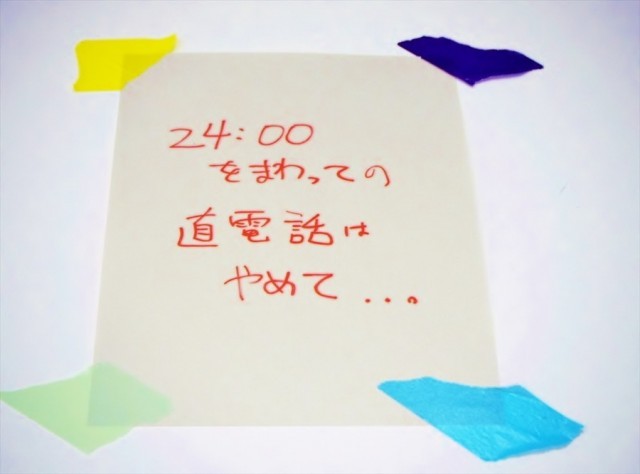 24:00
をまわっての
直電話は
やめて...。